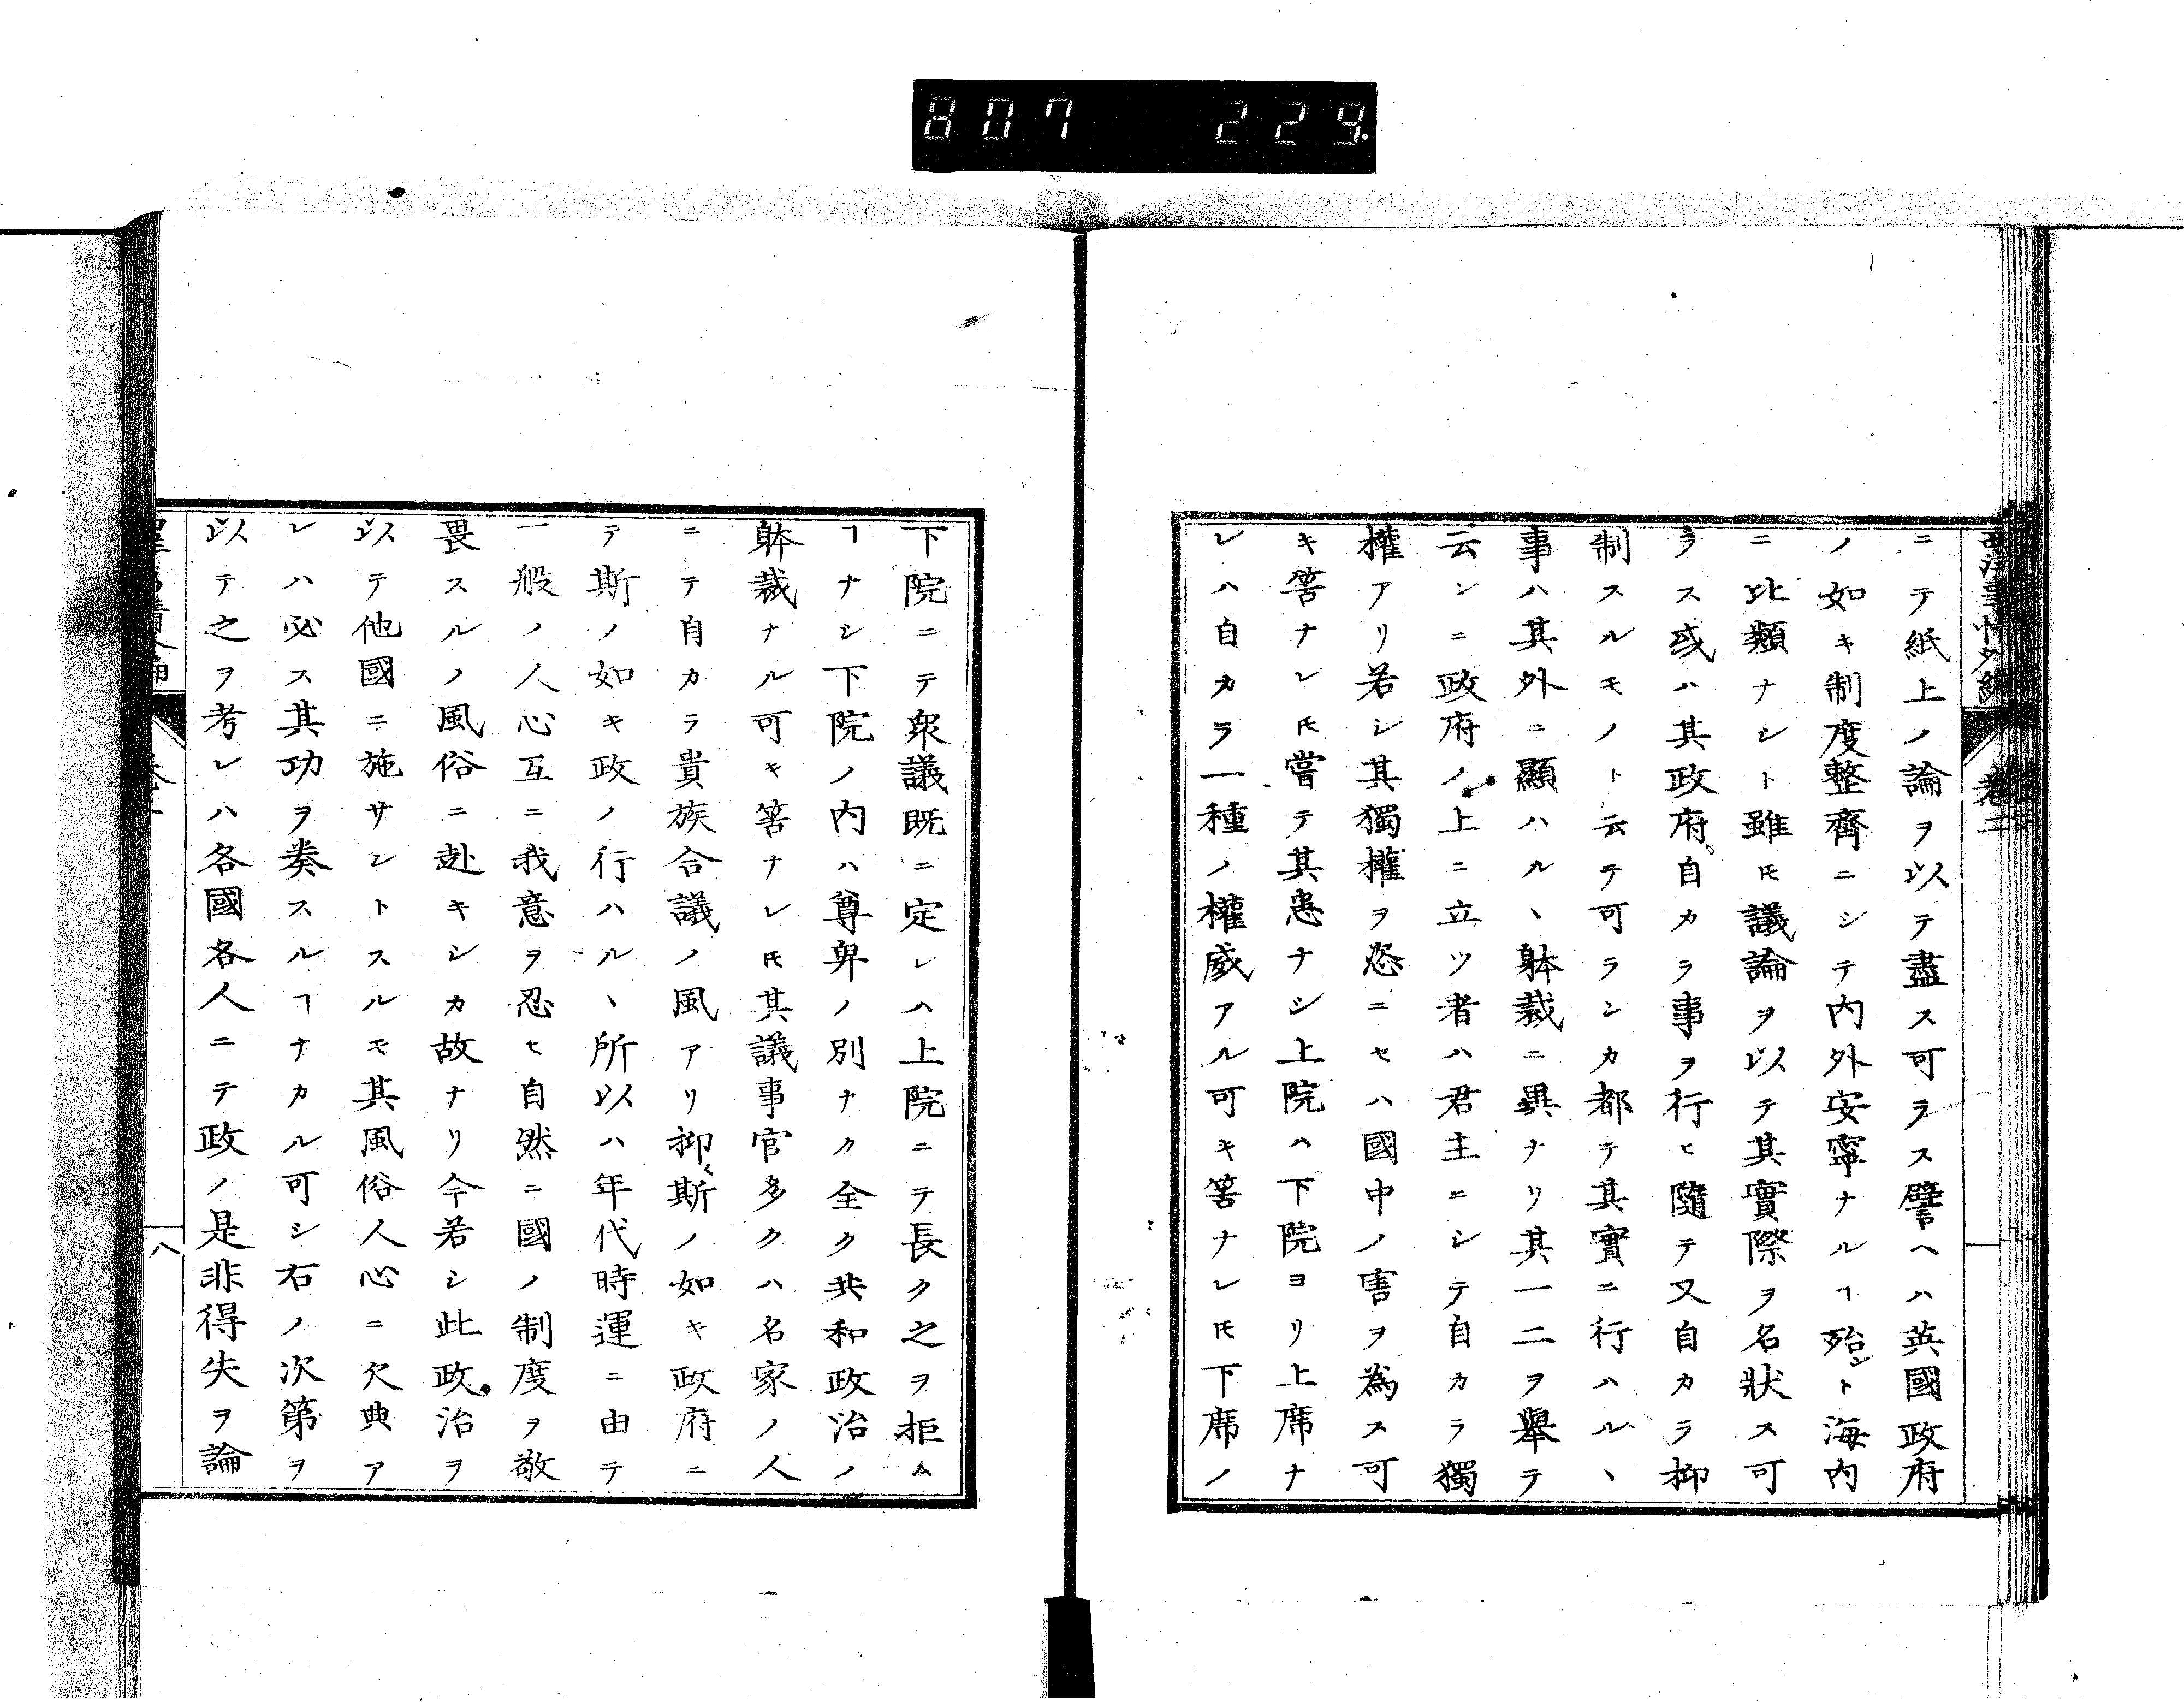 807 229
西洋事情外編 卷二
ニテ紙上ノ論ヲ以テ盡ス可ラス譬ヘハ英國政府
ノ如キ制度整齊ニシテ内外安寧ナルヿ殆ント海内
ニ比類ナシト雖𪜈議論ヲ以テ其實際ヲ名狀ス可
ラス或ハ其政府自カラ事ヲ行ヒ隨テ又自カラ抑
制スルモノト云テ可ランカ都テ其實ニ行ハルヽ
事ハ其外ニ顯ハルヽ躰裁ニ異ナリ其一二ヲ擧テ
云ンニ政府ノ上ニ立ツ者ハ君主ニシテ自カラ獨
權アリ若シ其獨權ヲ恣ニセハ國中ノ害ヲ為ス可
キ筈ナレ𪜈嘗テ其患ナシ上院ハ下院ヨリ上席ナ
レハ自カラ一種ノ權威アル可キ筈ナレ𪜈下席ノ
下院ニテ衆議既ニ定レハ上院ニテ長ク之ヲ拒ム
ヿナシ下院ノ内ハ尊卑ノ別ナク全ク共和政治ノ
躰裁ナル可キ筈ナレ𪜈其議事官多クハ名家ノ人
ニテ自カラ貴族合議ノ風アリ抑〻斯ノ如キ政府ニ
テ斯ノ如キ政ノ行ハルヽ所以ハ年代時運ニ由テ
一般ノ人心互ニ我意ヲ忍ヒ自然ニ國ノ制度ヲ敬
畏スルノ風俗ニ赴キシカ故ナリ今若シ此政治ヲ
以テ他國ニ施サントスルモ其風俗人心ニ欠典ア
レハ必ス其功ヲ奏スルヿナカル可シ右ノ次第ヲ
以テ之ヲ考レハ各國各人ニテ政ノ是非得失ヲ論
八